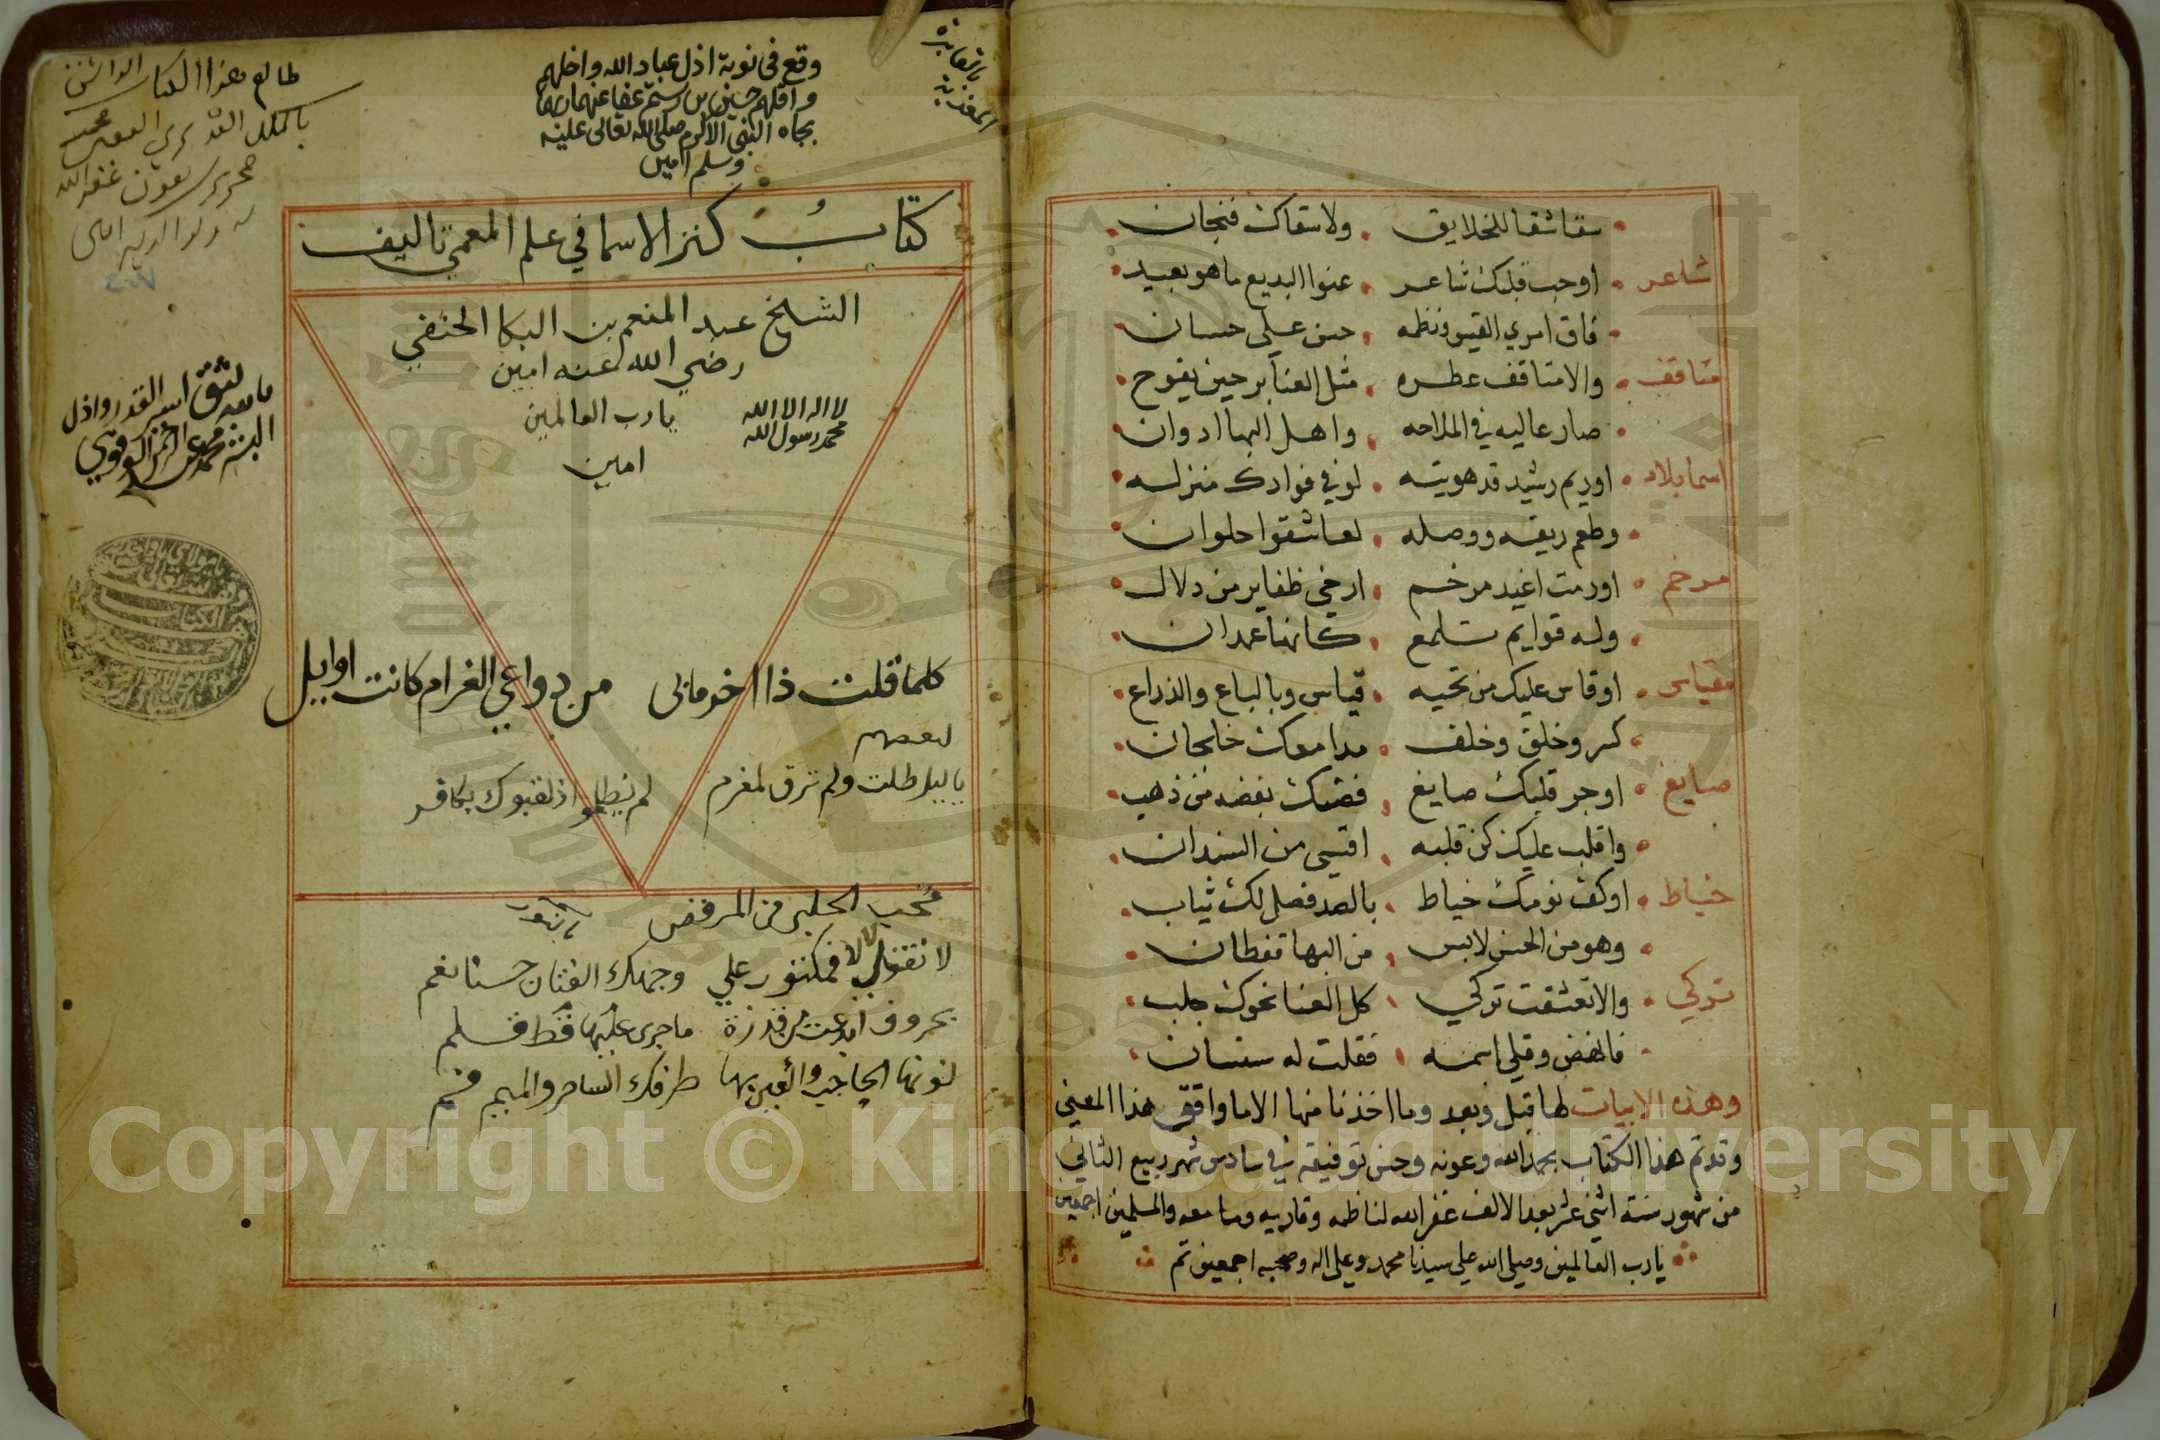 سقا شقا للخلايق ولا سقاك فنجان
شاعر اوحب قلبك شاعر عنوا البديع ما هو بعيد
فاق امري القيس ونظمه حسن علي حسان
مثاقف والا مثاقف عطره مثل العنابر حين يفوح
صار عاليه في الملاحه واهل البها ادوان
اسما بلاد اوريم رشيد قد هويته لو في فوادك منزله
وطعم ريقه ووصله لعاشقوا حلوان
مرخم اورمت اغيد مرخم ارخي ظفاير من دلال
وله قوايم تلمع كانها عمدان
مقياس اوقاس عليك من تحبه قياس وبالباع والذراع
كسر وخلق وخلف مدامعك خلجان
صايغ اوجر قلبك صايغ فضك بفضه من ذهب
واقلب عليك كن قلبه اقسي من السندان
خياط اوكف نومك خياط بالصد فصل لك ثياب
وهو من الحسن لابس من البها قفطان
تركي والا تعشقت تركي كل العنا نحوك جلب
فانهض وقلي اسمه فقلت له سنان
وهذه الابيات لها قبل وبعد وما اخذنا منها الا ما وافق هذا المعني
وقد تم هذا الكتاب بحمد الله وعونه وحسن توفيقه في سادس شهر ربيع الثاني
من شهور سنة اثني عشر بعد الالف غفر الله لناظمه وقاريه وسامعه والمسلمين اجمعين
يا رب العالمين وصلي الله علي سيدنا محمد وعلي اله وصحبه اجمعين تم
وقع في نوبة اذل عباد الله واخلهم
واقلهم حسين بن رستم عفا عنهما ربهما
بجاه النبي الاكرم صلى الله تعالى عليه
وسلم امين
طالع هذا الكتاب الواثق
بالملك
غفر الله
له ولوالديه امين
كتاب كنز الاسما في علم المعمي تاليف
الشيخ عبد المنعم بن البكا الحنفي
رضي الله عنه امين
يا رب العالمين
امين
لا اله الا الله
محمد رسول الله
اسير القدر واذل
البشر محمد
كلما قلت ذا اخو ما بي من دواعي الغرام كانت اوايل
لبعضهم
يا ليل طلت ولم ترق لمغرم لم يظلموا اذ لقبوك بكافر
محب الحلبي من المرفض
وجهك الفتان حسنا نغم
بحروف ابدعت من قدرة ما جرى عليها قط قلم
نونها الحاجب والعين بها طرفك الساحر والميم فم
Copyright © King Saud University